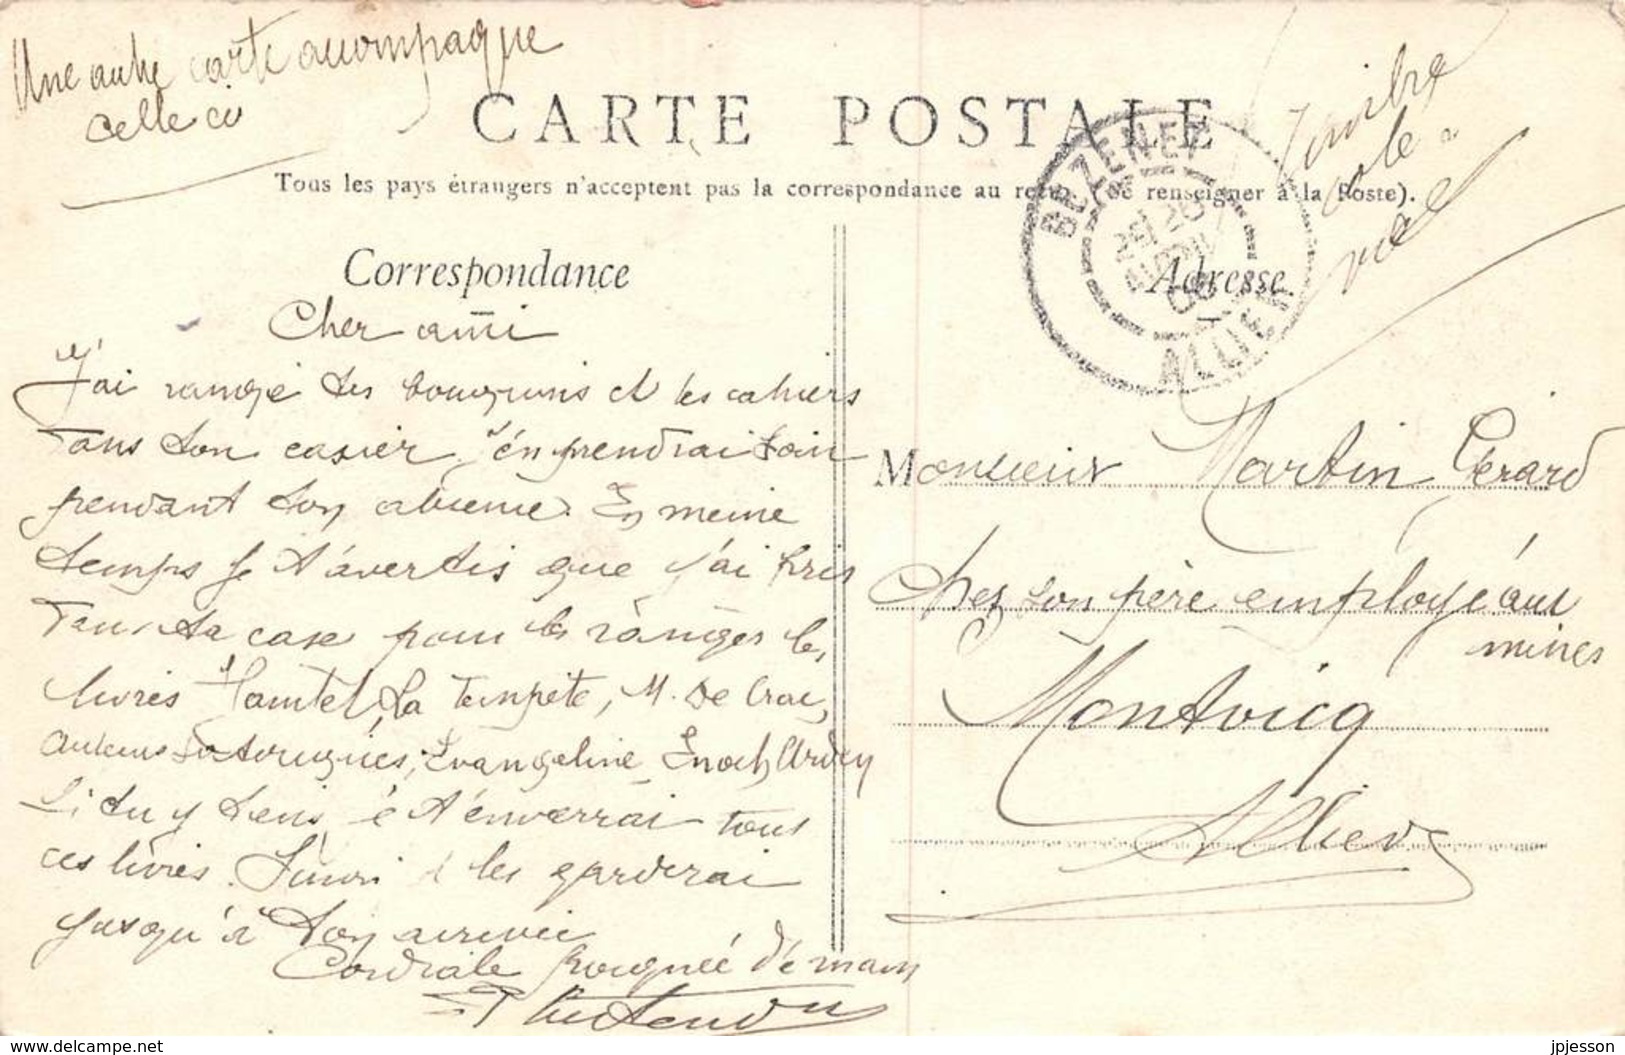 Une autre carte accompagne
celle ci
CARTE POSTALE
Tous les pays étrangers n'acceptent pas la correspondance au recto (Se renseigner à la Poste).
BEZENET
26
AVRIL
ALLIER
Correspondance
Adresse
Cher ami
J'ai rangé tes bouquins et tes cahiers
dans ton casier, j'en prendrai soin
pendant ton absence. En meme
temps je t'avertis que j'ai pris
dans ta case pour les ranger les
livres Hamlet, La Tempête, M. De Crac,
Auteurs, Evangeline Enoch Arden
Si tu y tiens, je t'enverrai tous
ces livres. Sinon je les garderai
jusqu'à ton arrivée
Cordiale poignée de main
Monsieur Martin Gérard
Chez son père employé aux
mines
Montvicq
Allier
jpjesson
www.delcampe.net